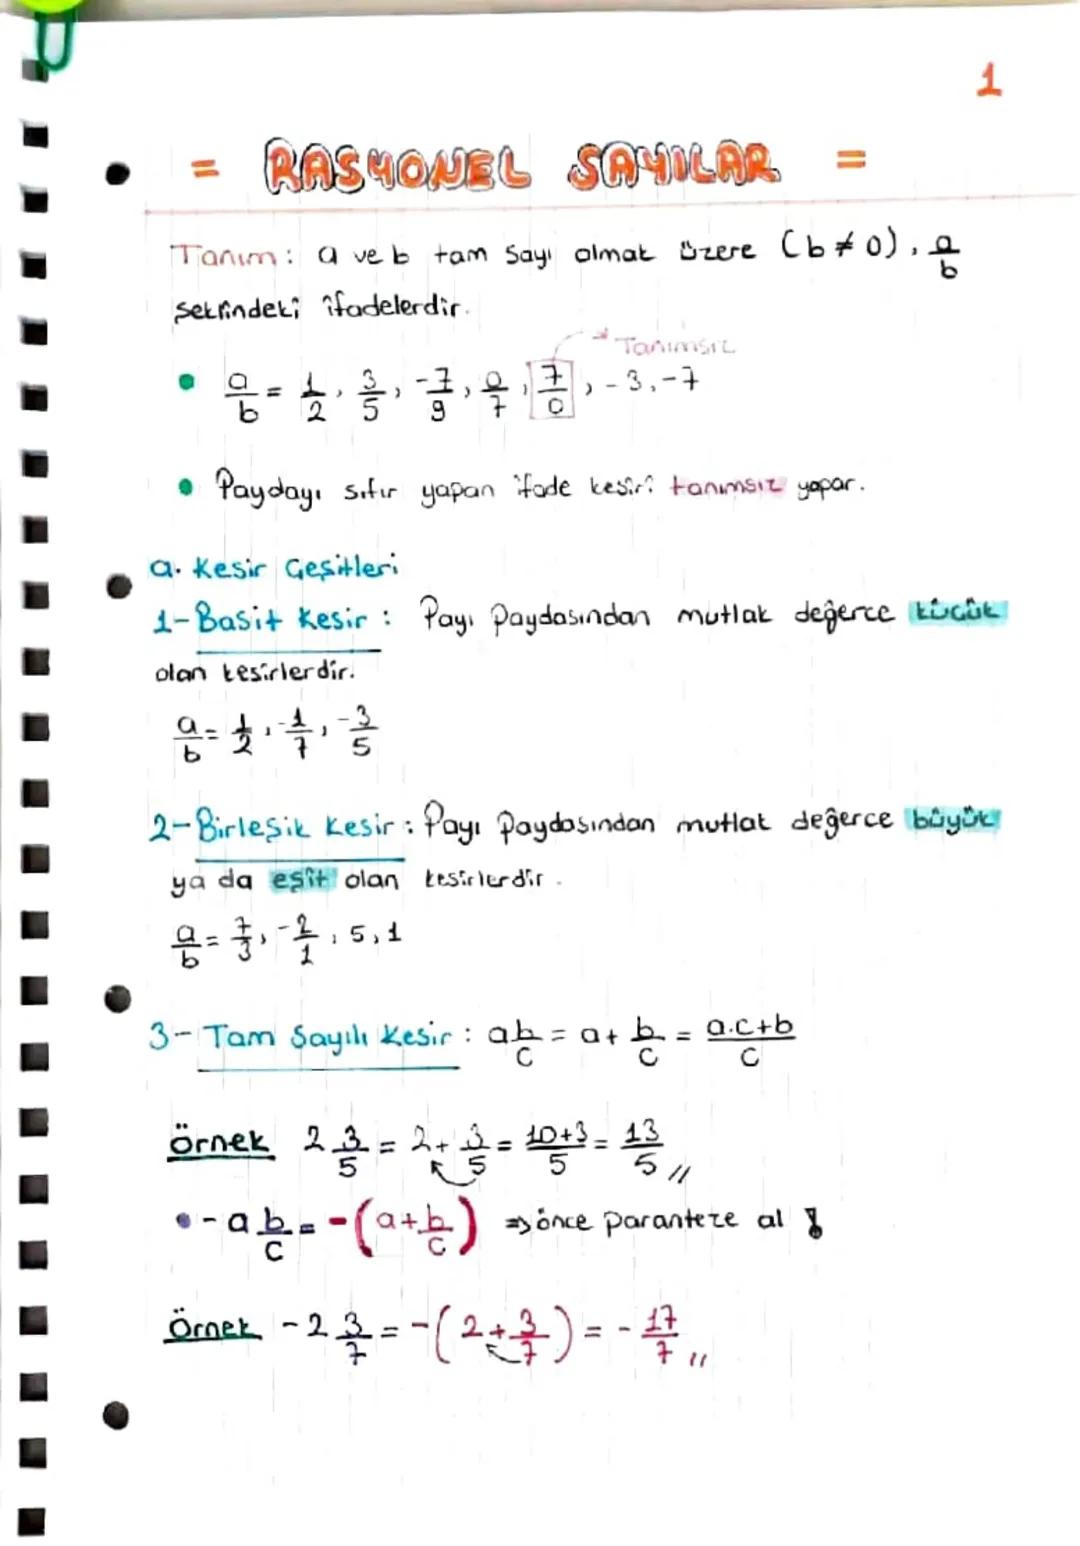 1
= RASYONEL SAYILAR =
Tanım: a ve b tam sayı olmak üzere (b ≠ 0), a/b
şeklindeki ifadelerdir.
Tanımsız
a/b = 1/2, 3/5, -7/9, 0/7, 7/0, -3, -7
Paydayı sıfır yapan ifade kesiri tanımsız yapar.
a. Kesir Çeşitleri
1-Basit Kesir: Payı paydasından mutlak değerce küçük
olan kesirlerdir.
a/b = 1/2, -1/7, -3/5
2-Birleşik Kesir: Payı paydasından mutlak değerce büyük
ya da eşit olan kesirlerdir.
a/b = 7/3, -2/1, 5, 1
3- Tam Sayılı Kesir: a b/c = a + b/c = a.c+b/c
Örnek 2 3/5 = 2 + 3/5 = 10+3/5 = 13/5 //
-a b/c = -(a + b/c) ⇒ önce paranteze al !
Örnek -2 3/7 = -(2 + 3/7) = -17/7 //